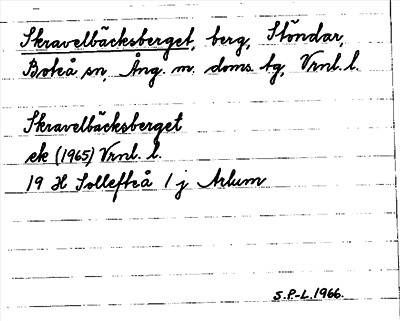 Skravelbäcksberget, berg, Stöndar,
Boteå sn, Ång. m. doms. tg, Vrnl. l.
Skravelbäcksberget
ek (1965) Vrnl. l.
19 H Sollefteå 1 j Arlum
S.P.-L. 1966.